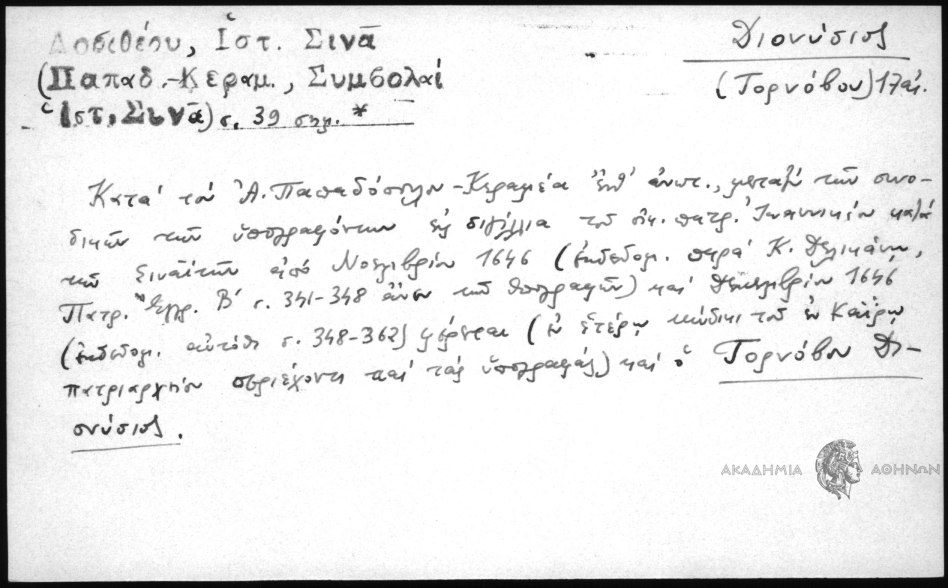 Δοσιθέου, Ἱστ. Σινᾶ
(Παπαδ.-Κεραμ., Συμβολαί
Ἱστ. Σινᾶ) σ. 39 σημ. *
Διονύσιος
(Τορνόβου) 17 αἰ.
Κατά τόν Ἀ. Παπαδόπουλον-Κεραμέα ἔνθ' ἀνωτ., μεταξύ τῶν συνο-
δικῶν τῶν ὑπογραψάντων εἰς σιγίλλια τοῦ οἰκ. πατρ. Ἰωαννικίου κατά
τῶν Σιναϊτῶν ἀπό Νοεμβρίου 1646 (ἐκδεδομ. παρά Κ. Δελικάνη,
Πατρ. Ἔγγρ. Β' σ. 341-348 ἄνευ τῶν ὑπογραφῶν) καί Δεκεμβρίου 1646
(ἐκδεδομ. αὐτόθι σ. 348-362) φέρεται (ἐν ἑτέρῳ κώδικι τοῦ ἐν Καΐρῳ
πατριαρχείου περιέχοντι καί τάς ὑπογραφάς) καί ὁ Τορνόβου Δι-
ονύσιος.
ΑΚΑΔΗΜΙΑ ΑΘΗΝΩΝ